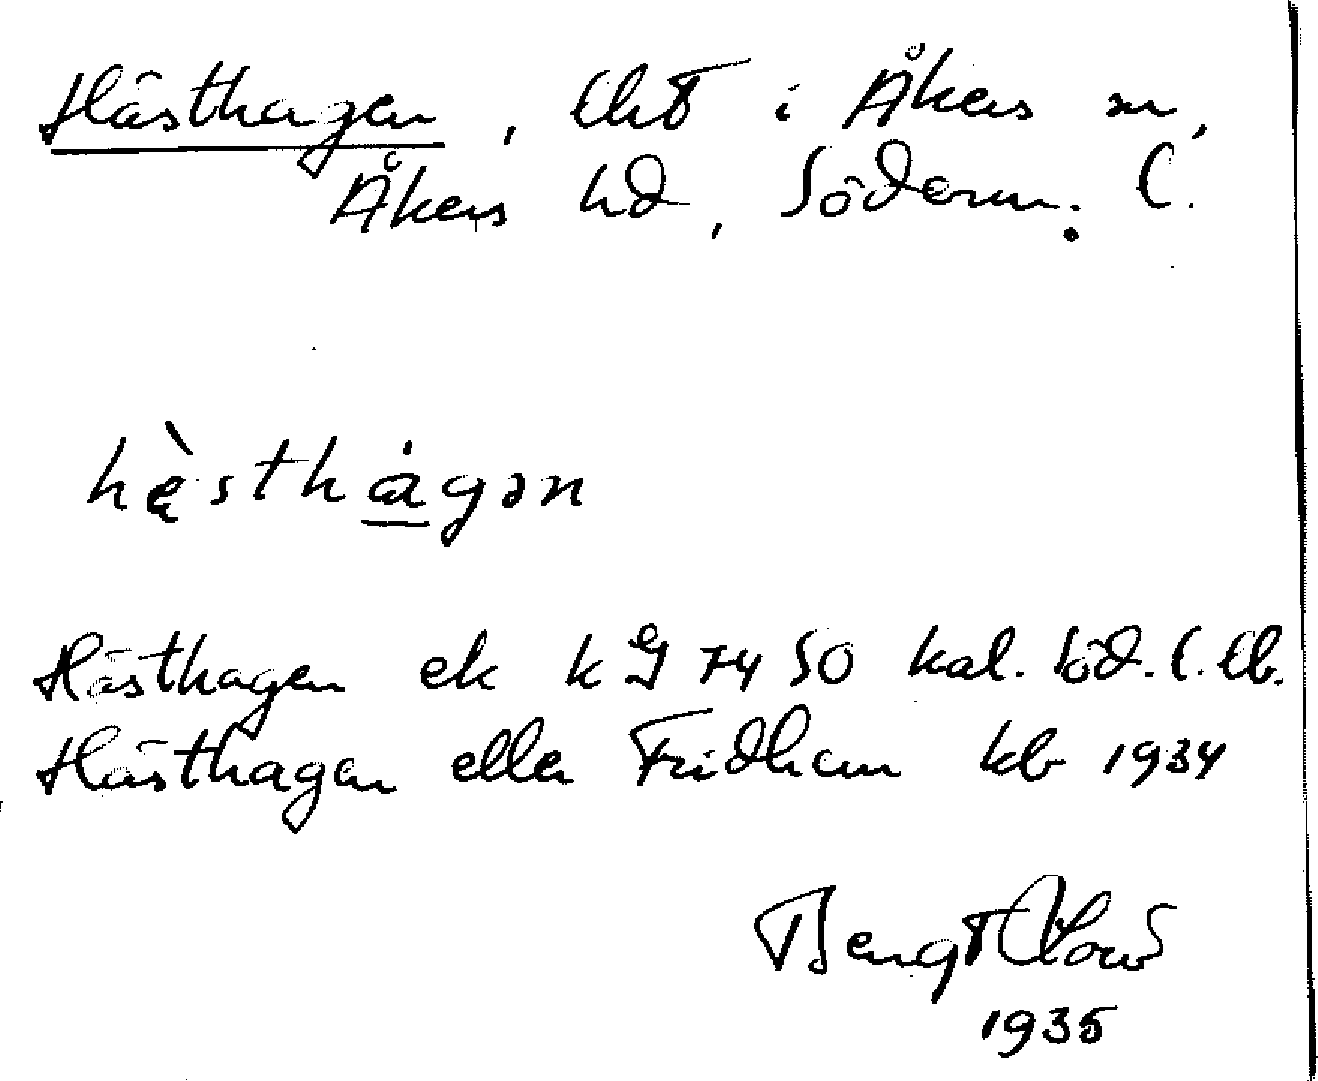 Hästhagen, lht i Åkers sn,
Åkers hd, Söderm. l.
hę̀sthågən
Hästhagen ek k 74 SO kal. Söd. l. lb.
Hästhagen eller Fridhem kb 1934
Bengt
1935